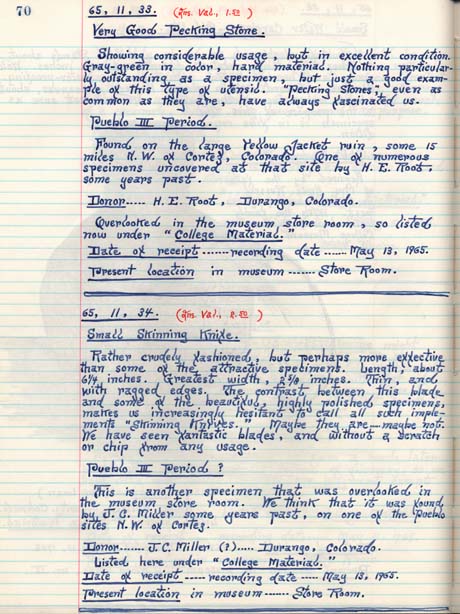 70
65, 11, 33. (Ins. Val., 1.50)
Very Good Pecking Stone.
Showing considerable usage, but in excellent condition.
Gray-green in color, hard material. Nothing particular-
ly outstanding as a specimen, but just a good exam-
ple of this type of utensil. "Pecking Stones," even as
common as they are, have always fascinated us.
Pueblo III Period.
Found on the large Yellow Jacket ruin, some 15
miles N.W. of Cortez, Colorado. One of numerous
specimens uncovered at that site by H. E. Root,
some years past.
Donor..... H. E. Root, Durango, Colorado.
Overlooked in the museum store room, so listed
now under "College Material."
Date of receipt ------- recording date ------ May 13, 1965.
Present location in museum ------- Store Room.
65, 11, 34. (Ins. Val., 2.50)
Small Skinning Knife.
Rather crudely fashioned, but perhaps more effective
than some of the attractive specimens. Length, about
6 1/4 inches. Greatest width, 2 inches. Thin, and
with ragged edges. The contrast between this blade
and some of the beautiful, highly polished specimens,
makes us increasingly hesitant to call all such imple-
ments "Skinning Knives." Maybe they are — maybe not.
We have seen fantastic blades, and without a scratch
or chip from any usage.
Pueblo III Period ?
This is another specimen that was overlooked in
the museum store room. We think that it was found
by J.C. Miller some years past, on one of the Pueblo
sites N.W. of Cortez.
Donor....... J.C. Miller (?)..... Durango, Colorado.
Listed here under "College Material."
Date of receipt ----- recording date ---- May 13, 1965.
Present location in museum ------ Store Room.